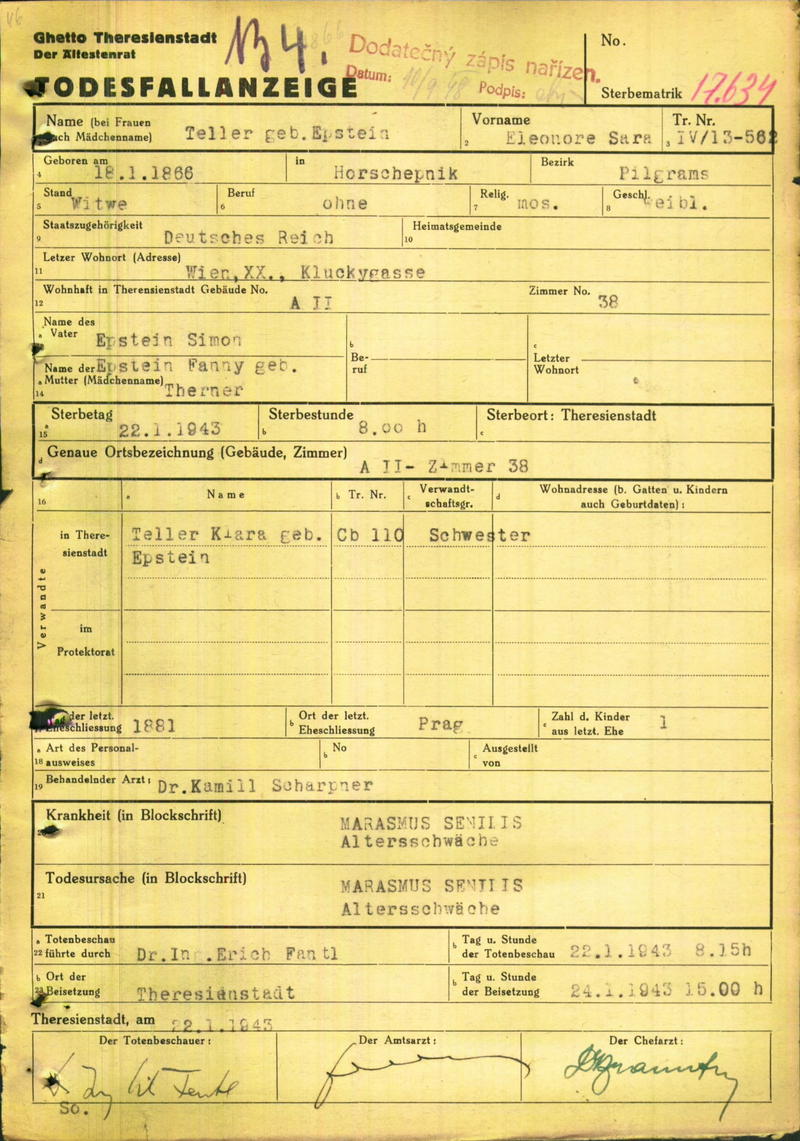 Ghetto Theresienstadt
Der Ältestenrat
TODESFALLANZEIGE
Dodatečný zápis nařízen.
Datum:
Podpis:
No.
Sterbematrik 17.634
Name (bei Frauen
auch Mädchenname) Teller geb.Epstein
Vorname
2 Eleonore Sara
Tr. Nr.
3 IV/13-562
Geboren am
4 18.1.1866
in
Horschepnik
Bezirk
Pilgrams
Stand
5 Witwe
Beruf
6 ohne
Relig.
7 mos.
Geschl.
8 weibl.
Staatszugehörigkeit
9 Deutsches Reich
Heimatsgemeinde
10
Letzer Wohnort (Adresse)
11 Wien,XX., Kluckygasse
Wohnhaft in Therensienstadt Gebäude No.
12 A II
Zimmer No.
38
Name des
a Vater Epstein Simon
Name der Epstein Fanny geb.
a Mutter (Mädchenname) Therner
14
b
Be-
ruf
c
Letzter
Wohnort
Sterbetag
15 a 22.1.1943
Sterbestunde
b 8.00 h
Sterbeort: Theresienstadt
c
d Genaue Ortsbezeichnung (Gebäude, Zimmer)
A II- Zimmer 38
16
a Name
b Tr. Nr.
c Verwandt-
schaftsgr.
d Wohnadresse (b. Gatten u. Kindern
auch Geburtdaten):
Verwandte
in There-
sienstadt
Teller Klara geb. Cb 110 Schwester
Epstein
im
Protektorat
der letzt.
Eheschliessung 1881
b Ort der letzt.
Eheschliessung Prag
c Zahl d. Kinder
aus letzt. Ehe 1
a Art des Personal-
18 ausweises
b No
c Ausgestellt
von
19 Behandelnder Arzt: Dr.Kamill Scharpner
Krankheit (in Blockschrift)
MARASMUS SENILIS
Altersschwäche
Todesursache (in Blockschrift)
21
MARASMUS SENILIS
Altersschwäche
a Totenbeschau
22 führte durch Dr.In .Erich Fantl
b Tag u. Stunde
der Totenbeschau 22.1.1943 8.15h
b Ort der
Beisetzung Theresienstadt
b Tag u. Stunde
der Beisetzung 24.1.1943 15.00 h
Theresienstadt, am 22.1.1943
Der Totenbeschauer:
Der Amtsarzt:
Der Chefarzt:
So.